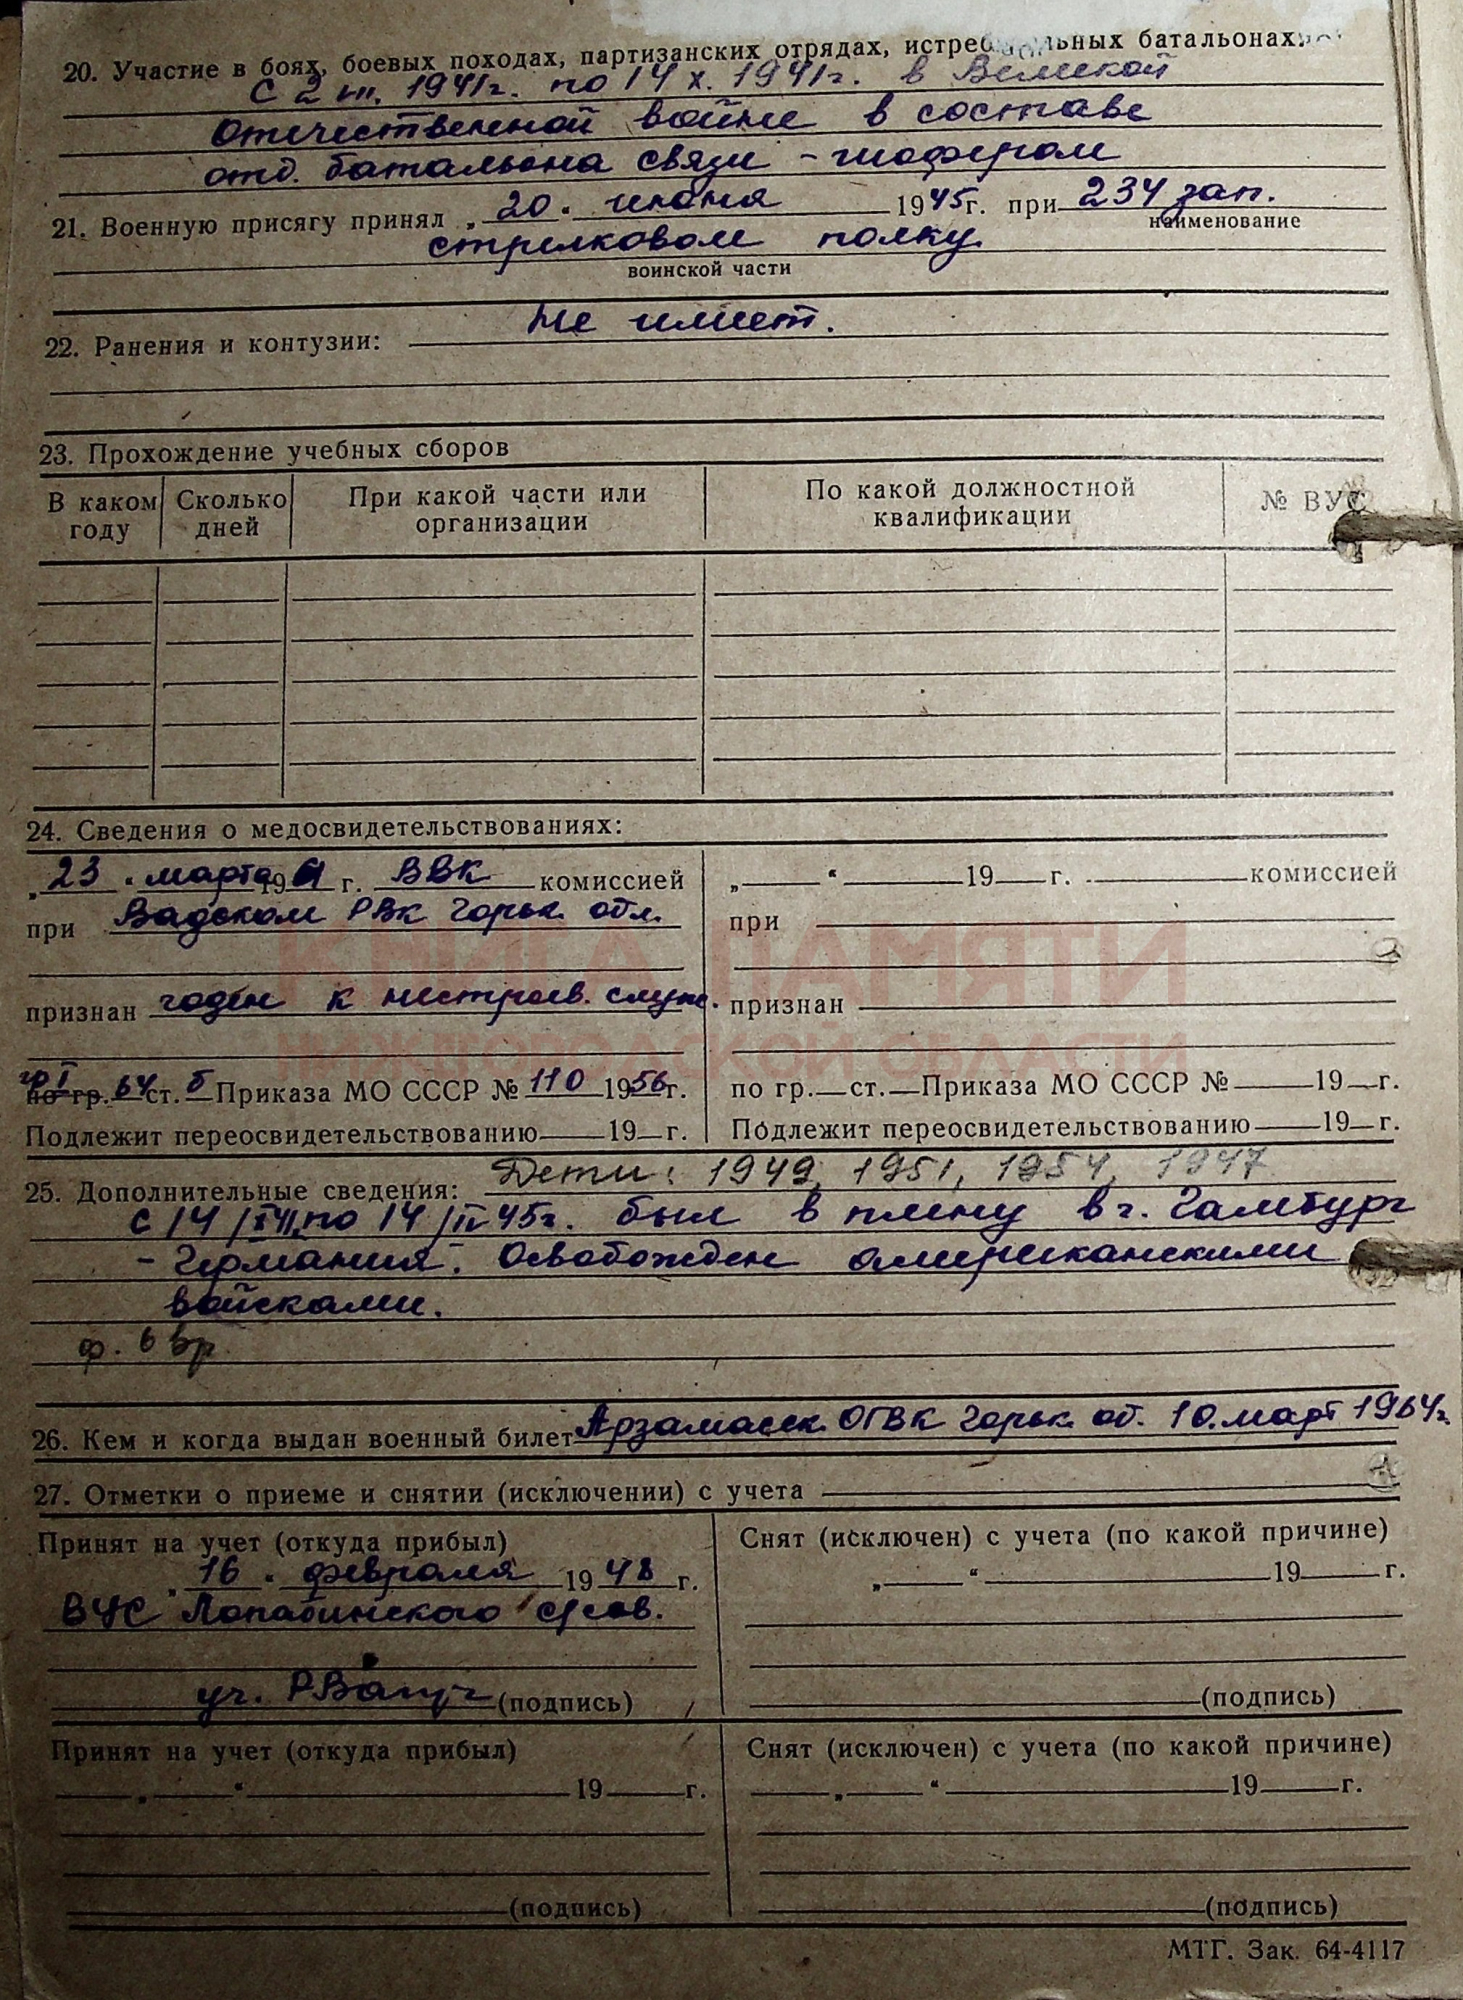 20. Участие в боях, боевых походах, партизанских отрядах, истреб льных батальонах
С 2 III. 1941г. по 14 X. 1941г. в Великой
Отечественной войне в составе
отд. батальона связи - шофером
21. Военную присягу принял „ 20 " июня 1945г. при 234 зап.
наименование
стрелковом полку.
воинской части
22. Ранения и контузии: Не имеет.
23. Прохождение учебных сборов
В каком году Сколько дней При какой части или организации По какой должностной квалификации № ВУС
24. Сведения о медосвидетельствованиях:
„ 23 " марта 19 г. ВВК комиссией
при Вадском РВК Горьк. обл.
признан годен к нестроев. служ.
гр I
по гр. 64 ст. б Приказа МО СССР № 110 1956г.
Подлежит переосвидетельствованию 19 г.
„ " 19 г. комиссией
при
признан
по гр. ст. Приказа МО СССР № 19 г.
Подлежит переосвидетельствованию 19 г.
25. Дополнительные сведения: Дети: 1949, 1951, 1954, 1947
с 14/ по 14/ 45г. был в плену в г. Гамбург
- Германия. Освобожден американскими
войсками.
ф. 6 вр
26. Кем и когда выдан военный билет Арзамасск. ОГВК Горьк. об. 10. март 1964г.
27. Отметки о приеме и снятии (исключении) с учета
Принят на учет (откуда прибыл)
„ 16 " февраля 1948 г.
ВУС Лопатинского с/сов.
уч. (подпись)
Снят (исключен) с учета (по какой причине)
„ " 19 г.
(подпись)
Принят на учет (откуда прибыл)
„ " 19 г.
(подпись)
Снят (исключен) с учета (по какой причине)
„ " 19 г.
(подпись)
МТГ. Зак. 64-4117
КНИГА ПАМЯТИ
НИЖЕГОРОДСКОЙ ОБЛАСТИ